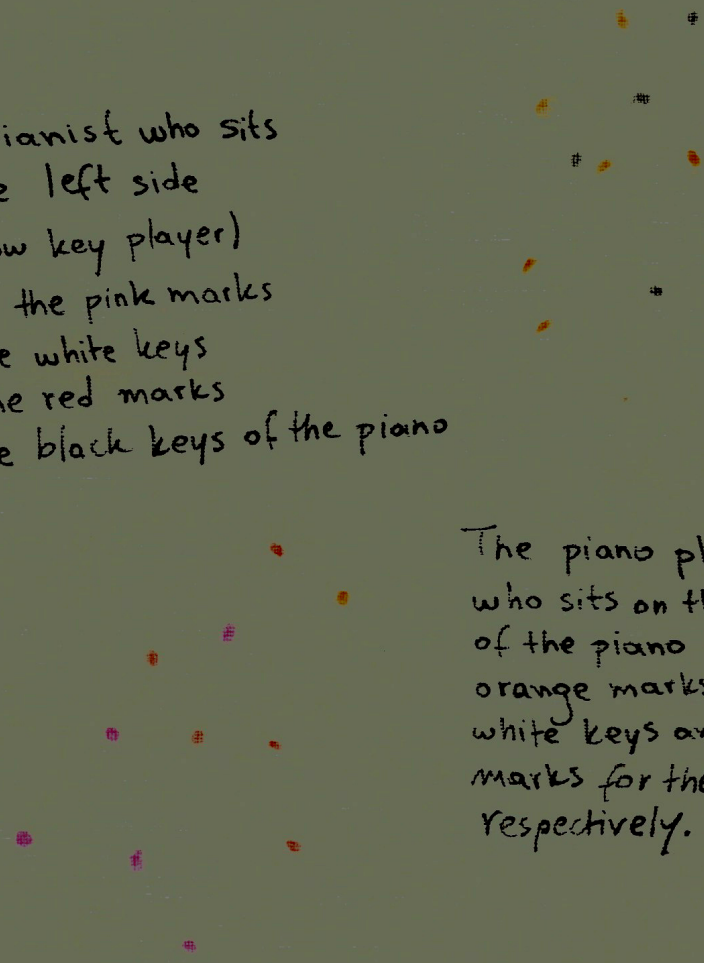 ianist who sits
e left side
w key player)
the pink marks
e white keys
e red marks
e black keys of the piano
The piano pl
who sits on th
of the piano
orange marks
white keys a
marks for the
respectively.